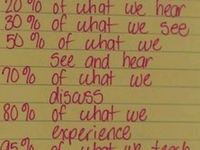 20% of what we hear
30% of what we see
50% of what we
see and hear
70% of what we
discuss
80% of what we
experience
95% of what we teach